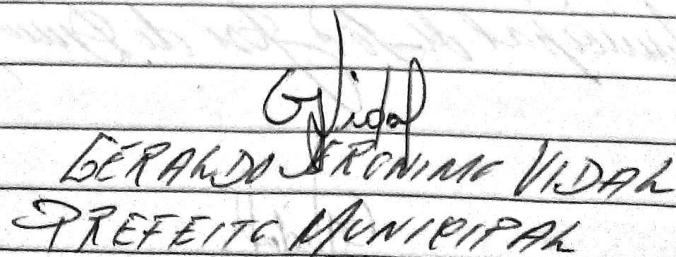 GVidal
GERALDO JERONIMO VIDAL
PREFEITO MUNICIPAL